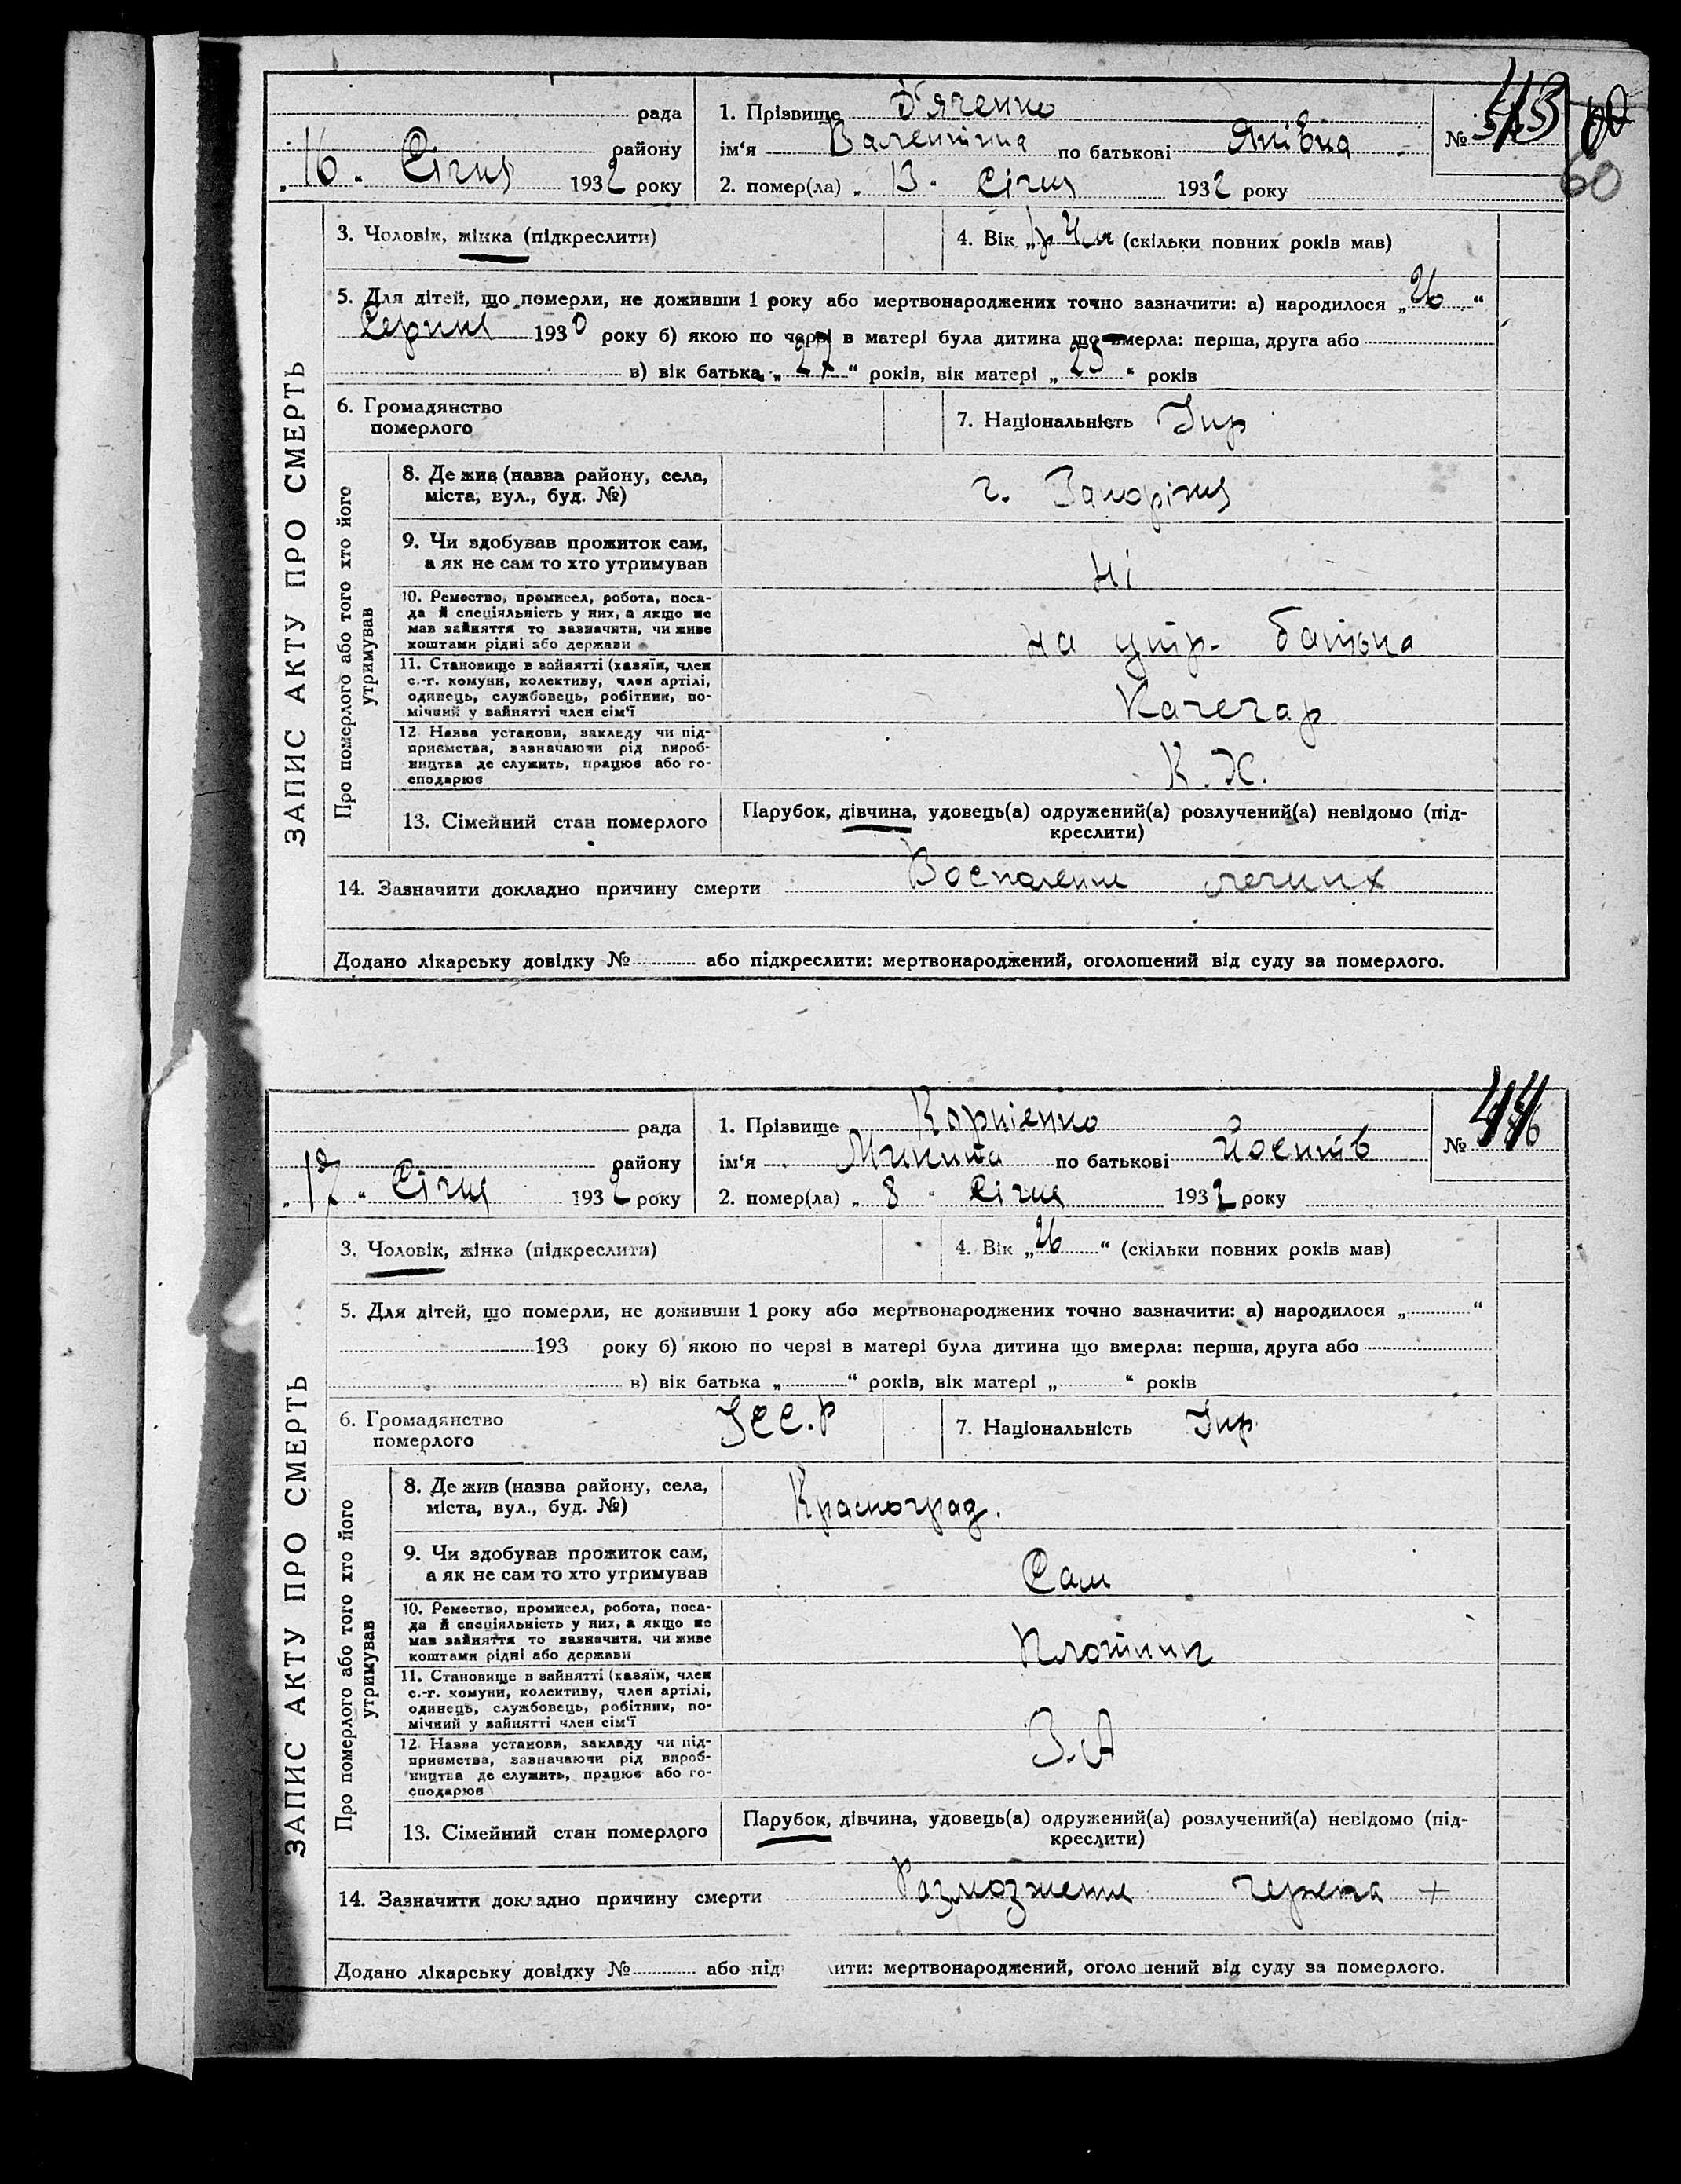 60
рада
району
„16“ Січня 1932 року
1. Прізвище Д'яченко
ім'я Валентина по батькові Яківна
2. помер(ла) „13“ Січня 1932 року
№
ЗАПИС АКТУ ПРО СМЕРТЬ
3. Чоловік, жінка (підкреслити)
4. Вік „1р 4м (скільки повних років мав)
5. Для дітей, що померли, не доживши 1 року або мертвонароджених точно зазначити: а) народилося „26“
Серпня 1930 року б) якою по черзі в матері була дитина що вмерла: перша, друга або
в) вік батька „27“ років, вік матері „23“ років
6. Громадянство
померлого
7. Національність Укр
Про померлого або того хто його
утримував
8. Де жив (назва району, села,
міста, вул., буд. №)
г. Запоріжя
9. Чи здобував прожиток сам,
а як не сам то хто утримував
Ні
10. Ремество, промисел, робота, поса-
да й спеціяльність у них, а якщо не
мав зайняття то зазначити, чи живе
коштами рідні або держави
на утр. батька
11. Становище в зайнятті (хазяїн, член
с.-г. комуни, колективу, член артілі,
одинець, службовець, робітник, по-
мічний у зайнятті член сім'ї
Качегар
12 Назва установи, закладу чи під-
приємства, зазначаючи рід вироб-
ництва де служить, працює або го-
сподарює
К. Х.
13. Сімейний стан померлого
Парубок, дівчина, удовець(а) одружений(а) розлучений(а) невідомо (під-
креслити)
14. Зазначити докладно причину смерти Воспаление легких
Додано лікарську довідку № або підкреслити: мертвонароджений, оголошений від суду за померлого.
рада
району
„17“ Січня 1932 року
1. Прізвище Корнієнко
ім'я Микита по батькові Йосипів
2. помер(ла) „8“ Січня 1932 року
№
ЗАПИС АКТУ ПРО СМЕРТЬ
3. Чоловік, жінка (підкреслити)
4. Вік „26“ (скільки повних років мав)
5. Для дітей, що померли, не доживши 1 року або мертвонароджених точно зазначити: а) народилося „ “
193 року б) якою по черзі в матері була дитина що вмерла: перша, друга або
в) вік батька „ “ років, вік матері „ “ років
6. Громадянство
померлого
УСС.Р
7. Національність Укр
Про померлого або того хто його
утримував
8. Де жив (назва району, села,
міста, вул., буд. №)
Красноград.
9. Чи здобував прожиток сам,
а як не сам то хто утримував
Сам
10. Ремество, промисел, робота, поса-
да й спеціяльність у них, а якщо не
мав зайняття то зазначити, чи живе
коштами рідні або держави
Плотник
11. Становище в зайнятті (хазяїн, член
с.-г. комуни, колективу, член артілі,
одинець, службовець, робітник, по-
мічний у зайнятті член сім'ї
12. Назва установи, закладу чи під-
приємства, зазначаючи рід вироб-
ництва де служить, працює або го-
сподарює
З.А
13. Сімейний стан померлого
Парубок, дівчина, удовець(а) одружений(а) розлучений(а) невідомо (під-
креслити)
14. Зазначити докладно причину смерти Размозжение черепа +
Додано лікарську довідку № або під ити: мертвонароджений, оголо ений від суду за померлого.